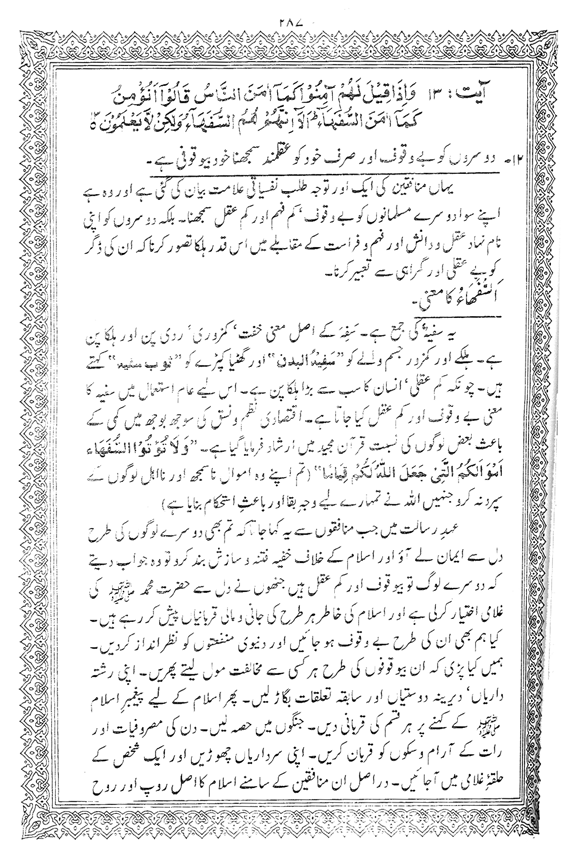 ۲۸۷
آیت: ۱۳ وَاِذَا قِیْلَ لَهُمْ آمِنُوْا کَمَآ اٰمَنَ النَّاسُ قَالُوْآ اَنُؤْمِنُ
کَمَآ اٰمَنَ السُّفَهَآءُ ؕ اَلَآ اِنَّهُمْ هُمُ السُّفَهَآءُ وَلٰکِنْ لَّا یَعْلَمُوْنَ ۝
۱۲۔ دوسروں کو بے وقوف اور صرف خود کو عقلمند سمجھنا خود بیوقوفی ہے۔
یہاں منافقین کی ایک اور توجہ طلب نفسیاتی علامت بیان کی گئی ہے اور وہ ہے
اپنے سوا دوسرے مسلمانوں کو بے وقوف‘ کم فہم اور کم عقل سمجھنا۔ بلکہ دوسروں کو اپنی
نام نہاد عقل و دانش اور فہم و فراست کے مقابلے میں اس قدر ہلکا تصور کرنا کہ ان کی ڈگر
کو بے عقلی اور گمراہی سے تعبیر کرنا۔
اَلسُّفَهَاءُ کا معنی۔
یہ سفیہ کی جمع ہے۔ سَفِهَ کے اصل معنی خفت‘ کمزوری‘ ردی پن اور ہلکا پن
ہے۔ ہلکے اور کمزور جسم والے کو ”سَفِیْهُ الْبَدَن“ اور گھٹیا کپڑے کو ”ثوب سفیہ“ کہتے
ہیں۔ چونکہ کم عقلی‘ انسان کا سب سے بڑا ہلکا پن ہے۔ اس لیے عام استعمال میں سفیہ کا
معنی بے وقوف اور کم عقل کیا جاتا ہے۔ اقتصادی نظم و نسق کی سوجھ بوجھ میں کمی کے
باعث بعض لوگوں کی نسبت قرآن مجید میں ارشاد فرمایا گیا ہے۔ ”وَلَا تُوْتُوْا السُّفَهَاءَ
اَمْوَالَکُمُ الَّتِیْ جَعَلَ اللّٰهُ لَکُمْ قِیَامًا“ (تم اپنے وہ اموال ناسمجھ اور نااہل لوگوں کے
سپرد نہ کرو جنہیں اللہ نے تمہارے لیے وجہ بقا اور باعثِ استحکام بنایا ہے)
عہدِ رسالت میں جب منافقوں سے یہ کہا جاتا کہ تم بھی دوسرے لوگوں کی طرح
دل سے ایمان لے آؤ اور اسلام کے خلاف خفیہ فتنہ و سازش بند کرو تو وہ جواب دیتے
کہ دوسرے لوگ تو بیوقوف اور کم عقل ہیں جنھوں نے دل سے حضرت محمد ﷺ کی
غلامی اختیار کرلی ہے اور اسلام کی خاطر ہر طرح کی جانی و مالی قربانیاں پیش کر رہے ہیں۔
کیا ہم بھی ان کی طرح بے وقوف ہو جائیں اور دنیوی منفعتوں کو نظر انداز کردیں۔
ہمیں کیا پڑی کہ ان بیوقوفوں کی طرح ہر کسی سے مخالفت مول لیتے پھریں۔ اپنی رشتہ
داریاں‘ دیرینہ دوستیاں اور سابقہ تعلقات بگاڑ لیں۔ پھر اسلام کے لیے پیغمبر اسلام
ﷺ کے کہنے پر ہر قسم کی قربانی دیں۔ جنگوں میں حصہ لیں۔ دن کی مصروفیات اور
رات کے آرام و سکوں کو قربان کریں۔ اپنی سرداریاں چھوڑیں اور ایک شخص کے
حلقۂ غلامی میں آجائیں۔ دراصل ان منافقین کے سامنے اسلام کا اصل روپ اور روح